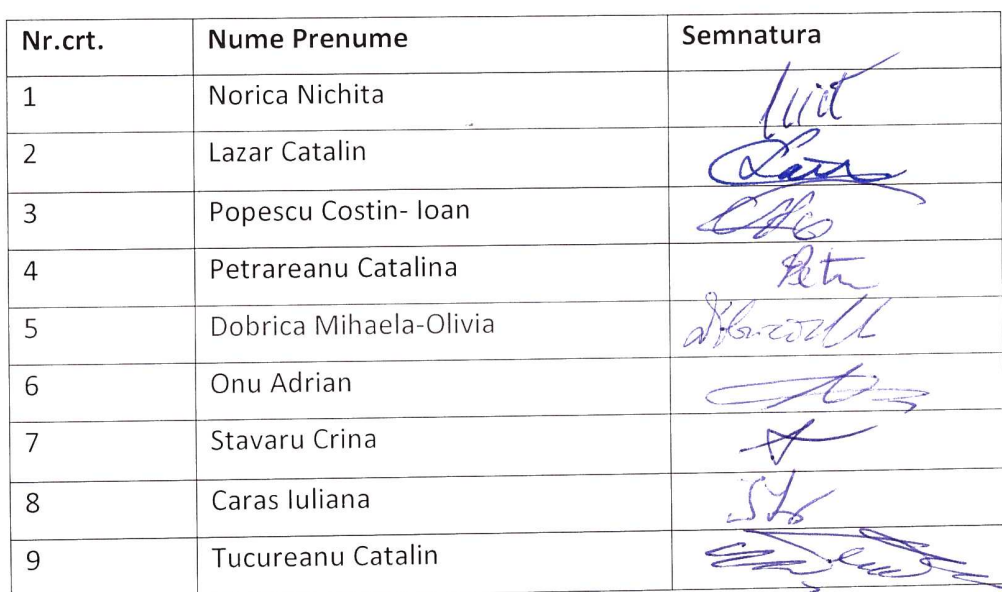 Nr.crt. Nume Prenume Semnatura
1 Norica Nichita
2 Lazar Catalin
3 Popescu Costin- Ioan
4 Petrareanu Catalina
5 Dobrica Mihaela-Olivia
6 Onu Adrian
7 Stavaru Crina
8 Caras Iuliana
9 Tucureanu Catalin